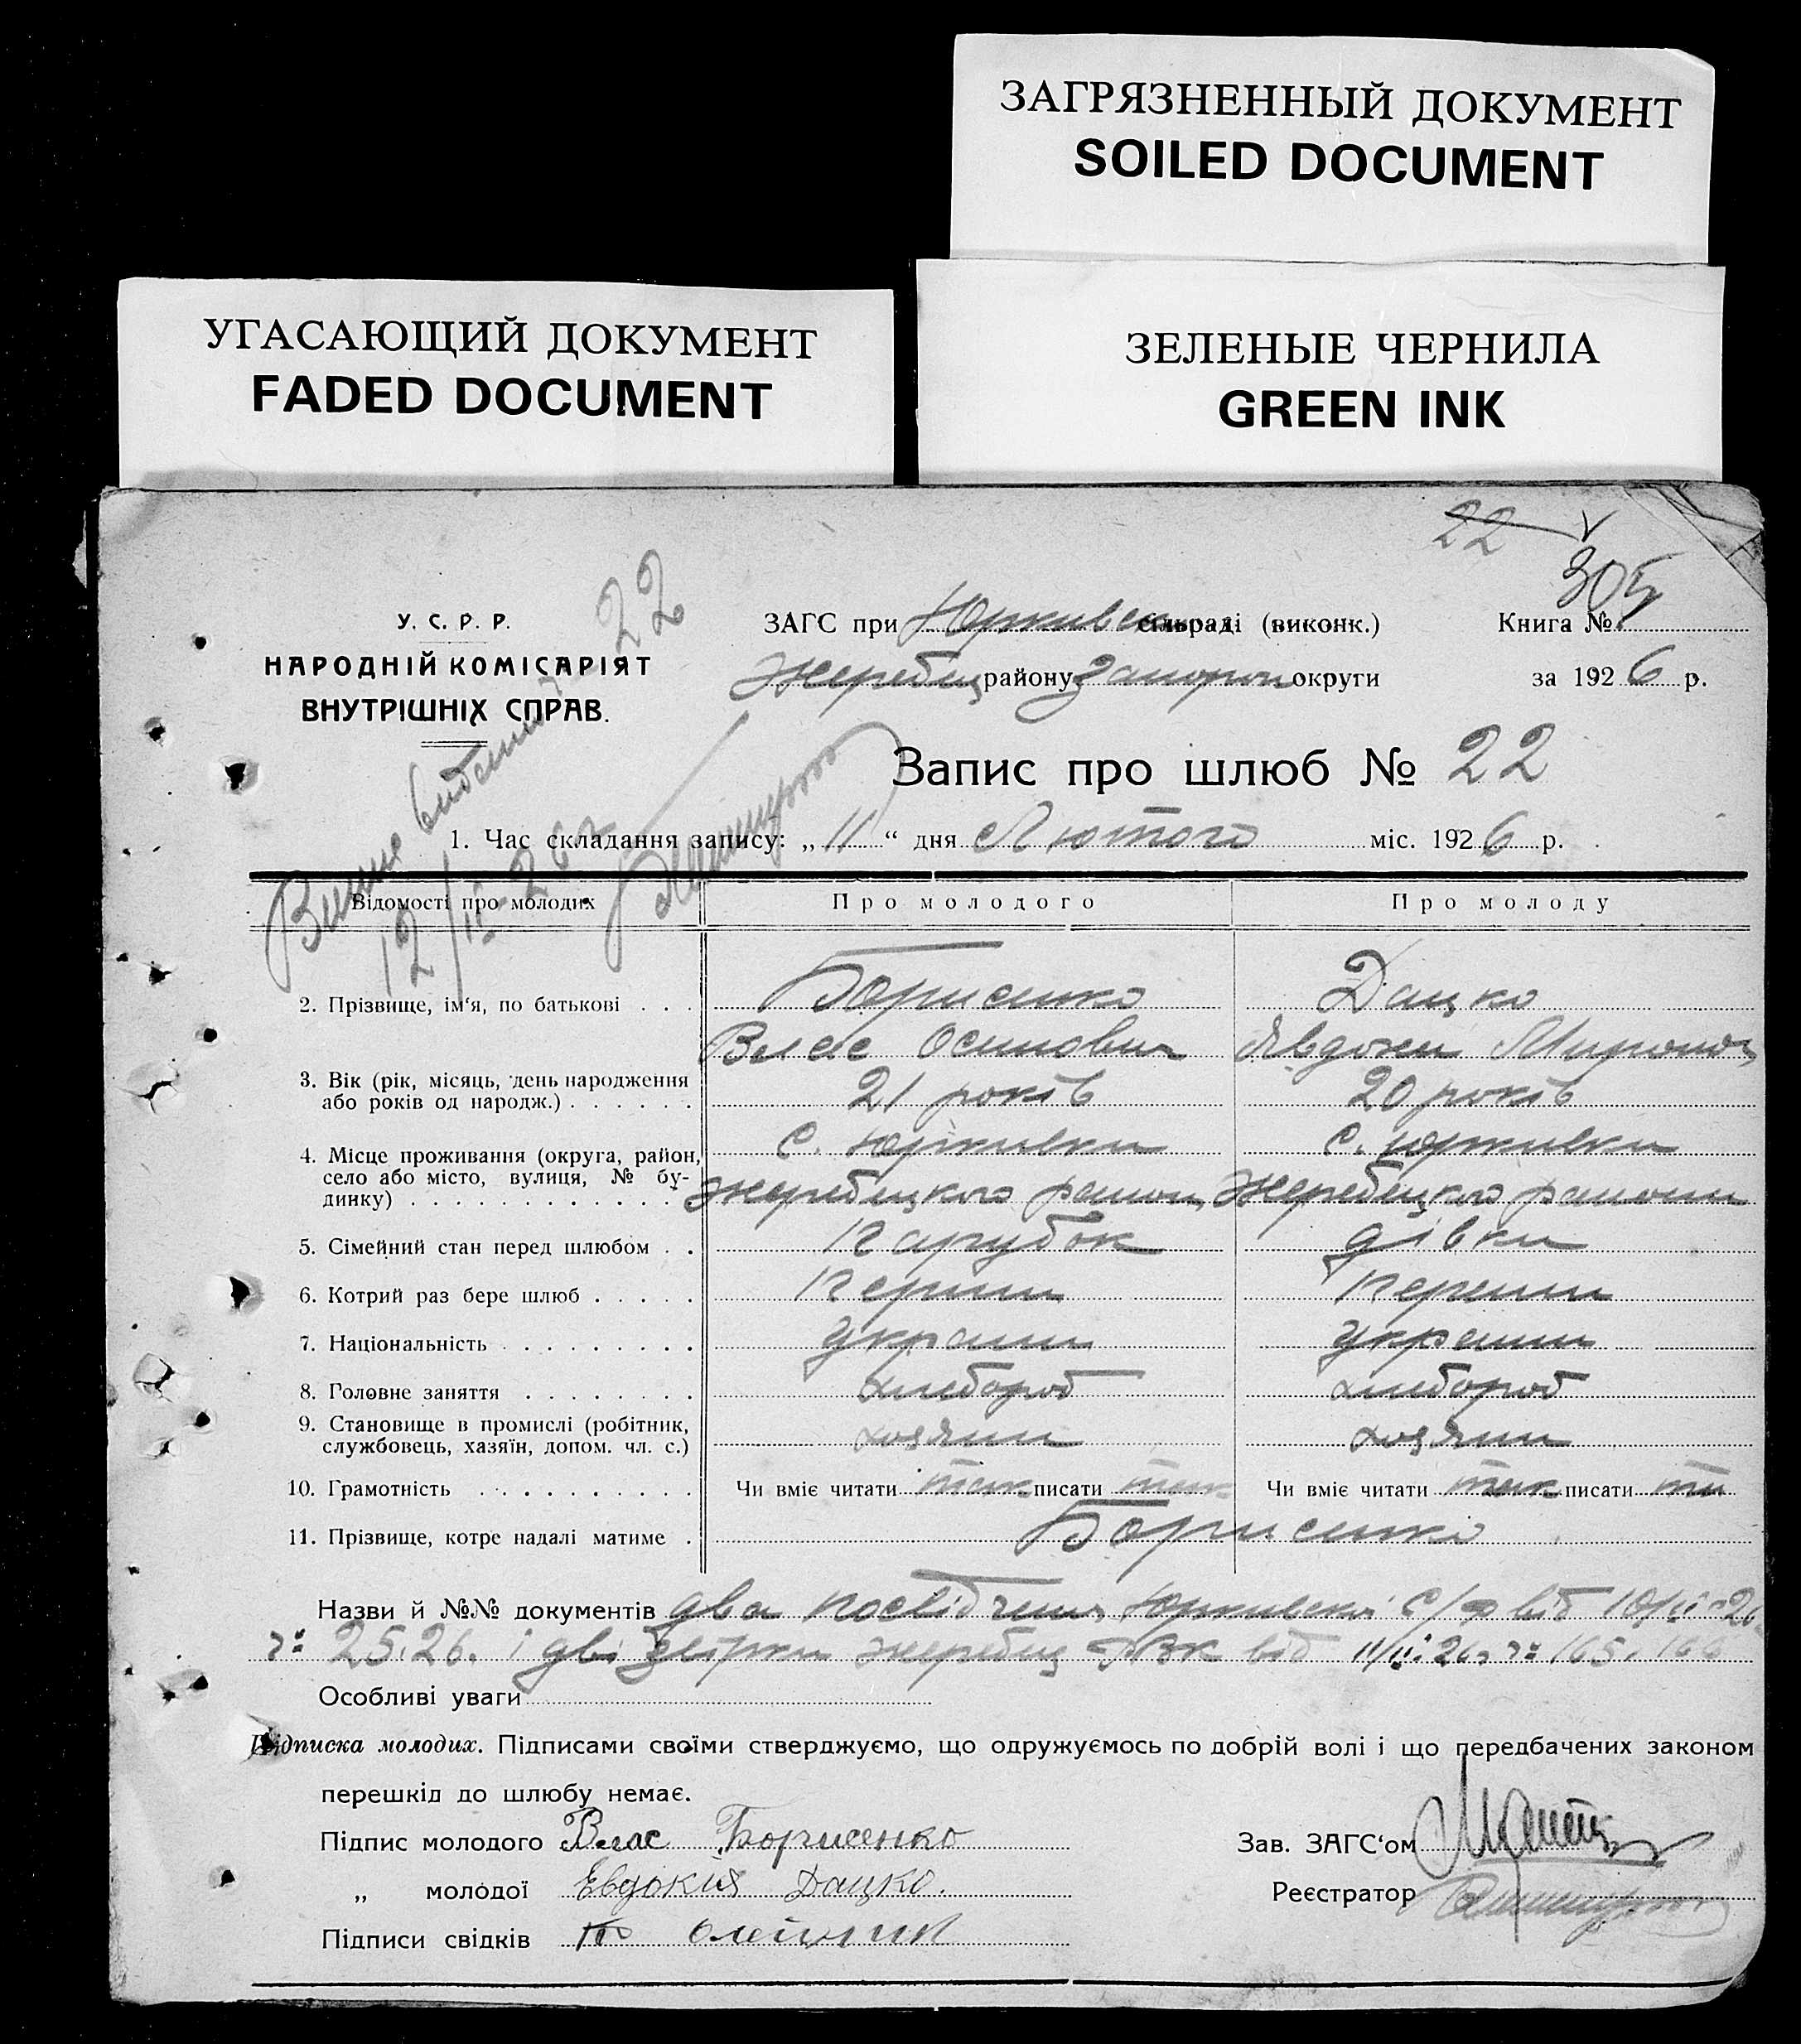 ЗАГРЯЗНЕННЫЙ ДОКУМЕНТ
SOILED DOCUMENT
УГАСАЮЩИЙ ДОКУМЕНТ
FADED DOCUMENT
ЗЕЛЕНЫЕ ЧЕРНИЛА
GREEN INK
22
305
22
У. С. Р. Р.
НАРОДНІЙ КОМІСАРІЯТ
ВНУТРІШНІХ СПРАВ.
ЗАГС при Юркивськ сільраді (виконк.)
Книга №
Жеребец району Запорож округи
за 1926 р.
Запис про шлюб № 22
1. Час складання запису: „11“ дня Лютого міс. 1926 р.
12/II-26 р
Відомості про молодих
Про молодого
Про молоду
2. Прізвище, ім‘я, по батькові . . .
Борисенко
Дацко
Влас Осипович
Явдокия Миронов
3. Вік (рік, місяць, день народження
або років од народж.) . . . . . .
21 років
20 років
4. Місце проживання (округа, район,
село або місто, вулиця, № бу-
динку) . . . . . . . . . . . .
с. Юркивка
с. Юркивка
Жеребецкого района
Жеребецкого района
5. Сімейний стан перед шлюбом . .
Парубок
дівка
6. Котрий раз бере шлюб . . . . .
Перши
Перши
7. Національність . . . . . . . . .
украин
украин
8. Головне заняття . . . . . . . .
хлебороб
хлебороб
9. Становище в промислі (робітник,
службовець, хазяїн, допом. чл. с.)
хозяин
хозяин
10. Грамотність . . . . . . . . . .
Чи вміє читати так писати так
Чи вміє читати так писати так
11. Прізвище, котре надалі матиме .
Борисенко
Назви й №№ документів два посвідчення Юркивской С/р від 10/II-26
ч: 25.26. і дві Жеребец РВК від 11/II-26 р ч: 165. 166
Особливі уваги
Підписка молодих. Підписами своїми стверджуємо, що одружуємось по добрій волі і що передбачених законом
перешкід до шлюбу немає.
Підпис молодого Влас Борисенко
Зав. ЗАГС‘ом
„ молодої Евдокия Дацко.
Реєстратор
Підписи свідків Олейник